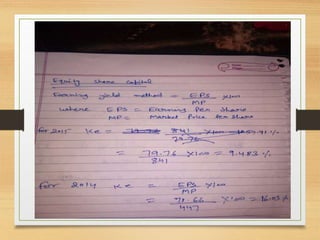 Equity share capital
Earning yield method = EPS X100
MP
where EPS = Earning Per Share
MP = Market Price Per Share
for 2015 Ke = 841 X100
79.76
= 79.76 X100 = 9.483 %
841
for 2014 Ke = EPS X100
MP
= 71.66 X100 = 16.03 %
447